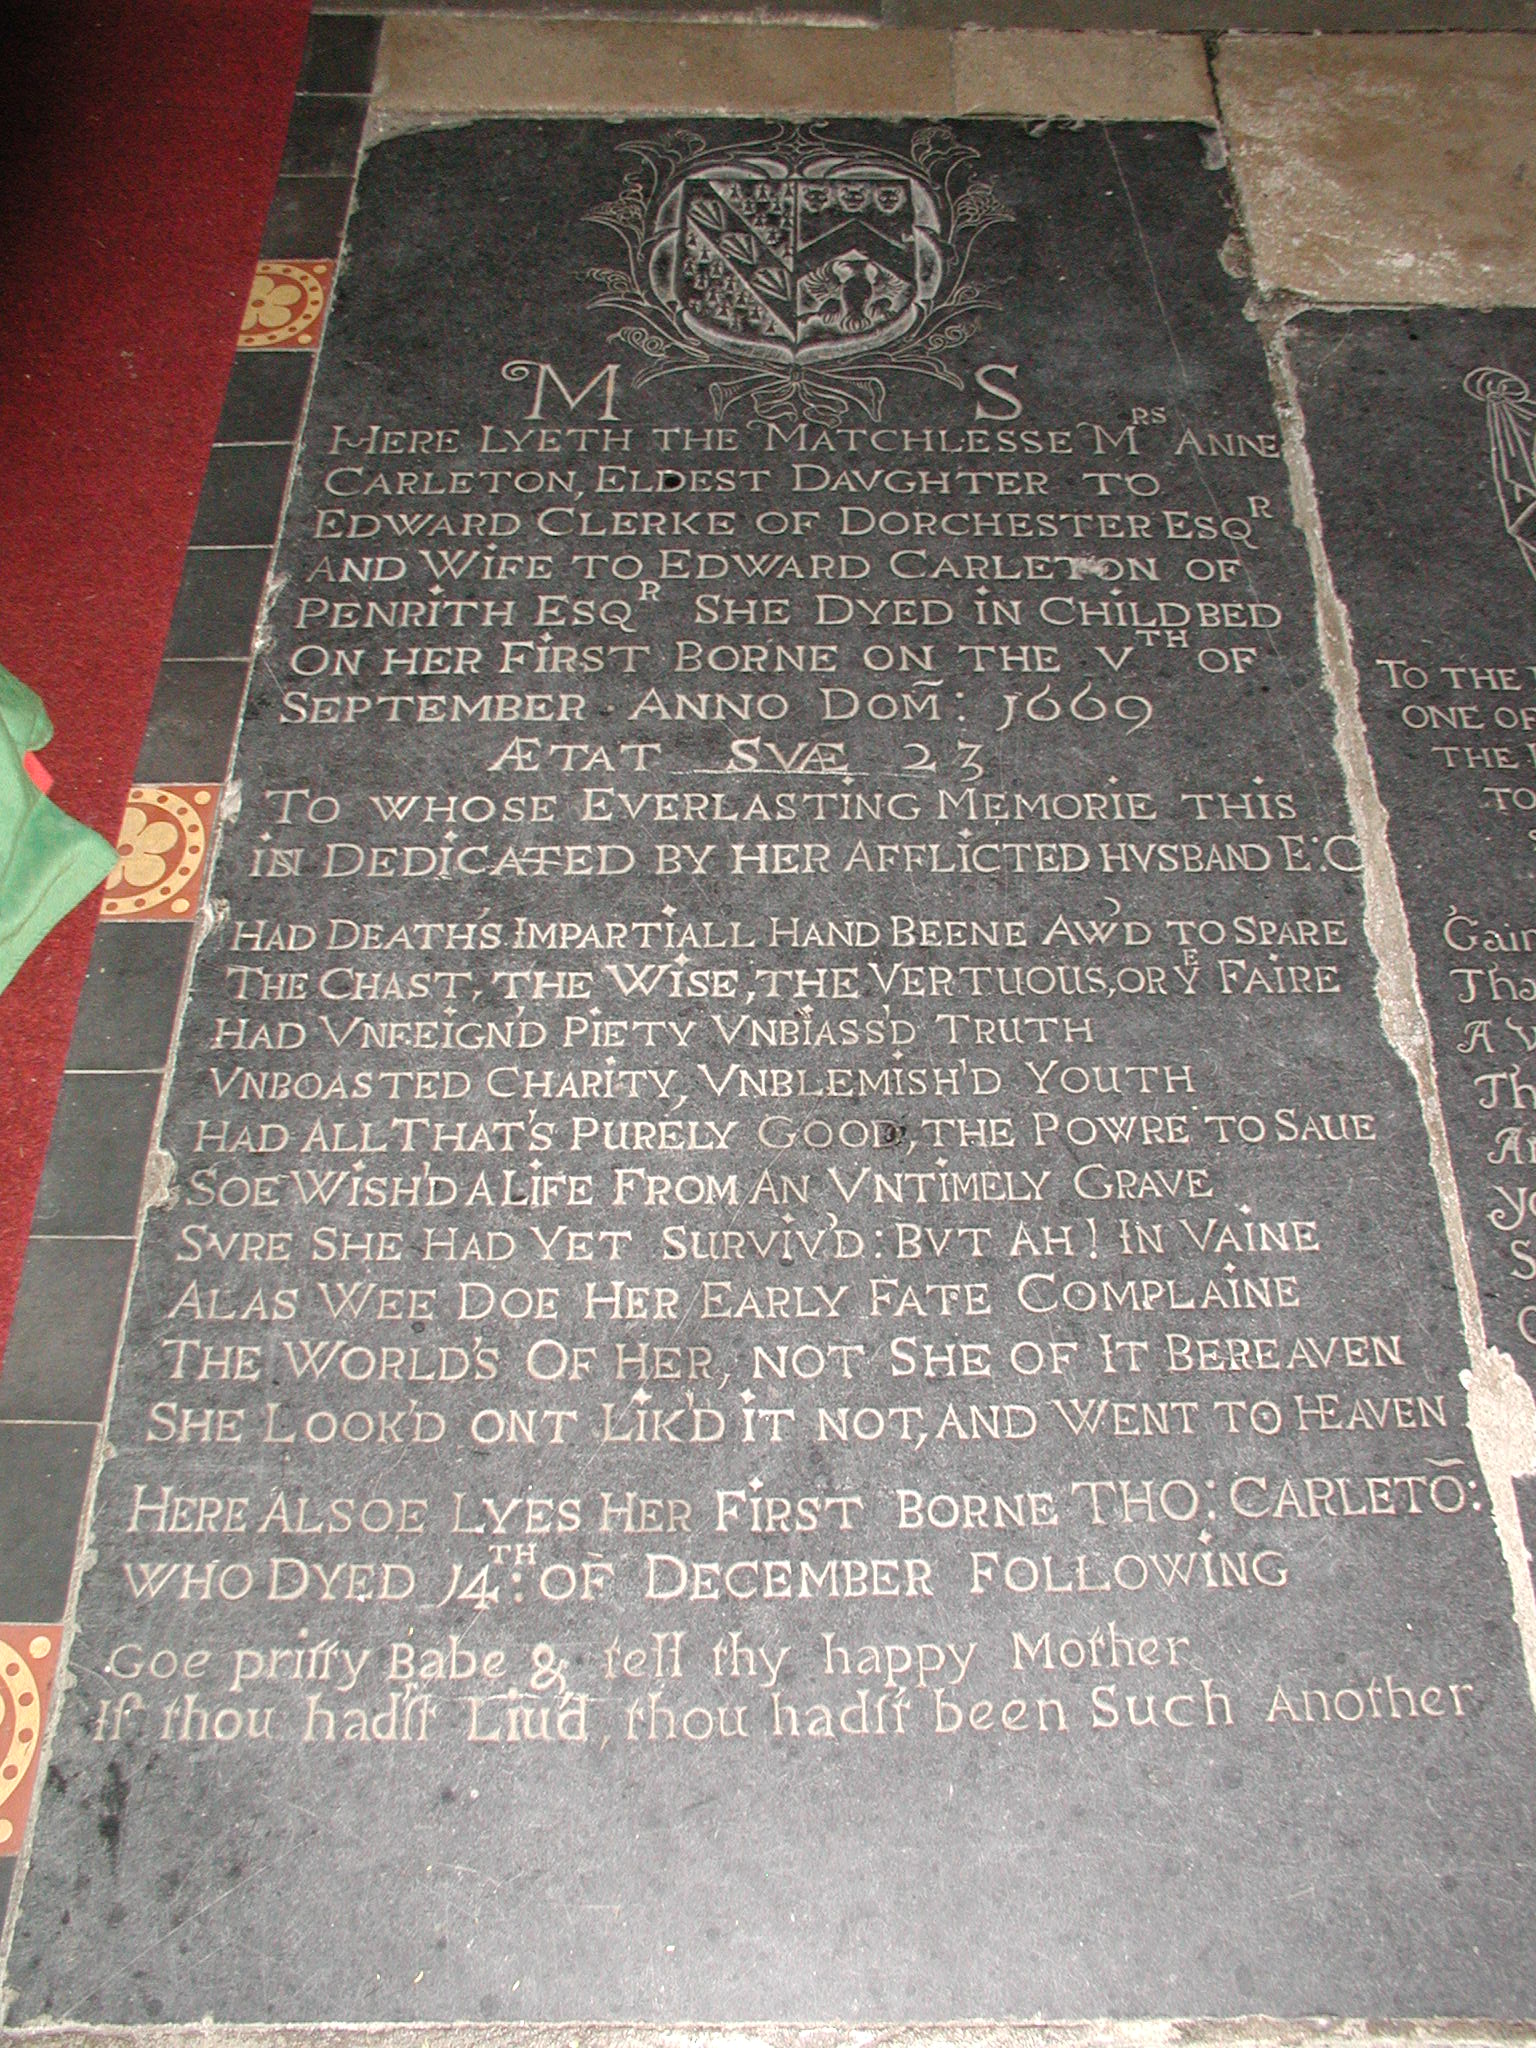 M S
HERE LYETH THE MATCHLESSE MRS ANNE
CARLETON, ELDEST DAVGHTER TO
EDWARD CLERKE OF DORCHESTER ESQR
AND WIFE TO EDWARD CARLETON OF
PENRITH ESQR SHE DYED IN CHILDBED
ON HER FIRST BORNE ON THE VTH OF
SEPTEMBER ANNO DOM̃: 1669
ÆTAT SVÆ 23
TO WHOSE EVERLASTING MEMORIE THIS
IS DEDICATED BY HER AFFLICTED HVSBAND E:C
HAD DEATH'S IMPARTIALL HAND BEENE AW'D TO SPARE
THE CHAST, THE WISE, THE VERTUOUS, OR YE FAIRE
HAD VNFEIGN'D PIETY VNBIASS'D TRUTH
VNBOASTED CHARITY, VNBLEMISH'D YOUTH
HAD ALL THAT'S PURELY GOOD, THE POWRE TO SAUE
SOE WISH'D A LIFE FROM AN VNTIMELY GRAVE
SVRE SHE HAD YET SURVIV'D: BVT AH! IN VAINE
ALAS WEE DOE HER EARLY FATE COMPLAINE
THE WORLD'S OF HER, NOT SHE OF IT BEREAVEN
SHE LOOK'D ONT LIK'D IT NOT, AND WENT TO HEAVEN
HERE ALSOE LYES HER FIRST BORNE THO: CARLETŌ:
WHO DYED 14TH: OF DECEMBER FOLLOWING
Goe pritty Babe & tell thy happy Mother
If thou hadſt Liu'd, thou hadſt been Such Another
TO THE
ONE OF
THE
TO
Gain
Tha
A
Th